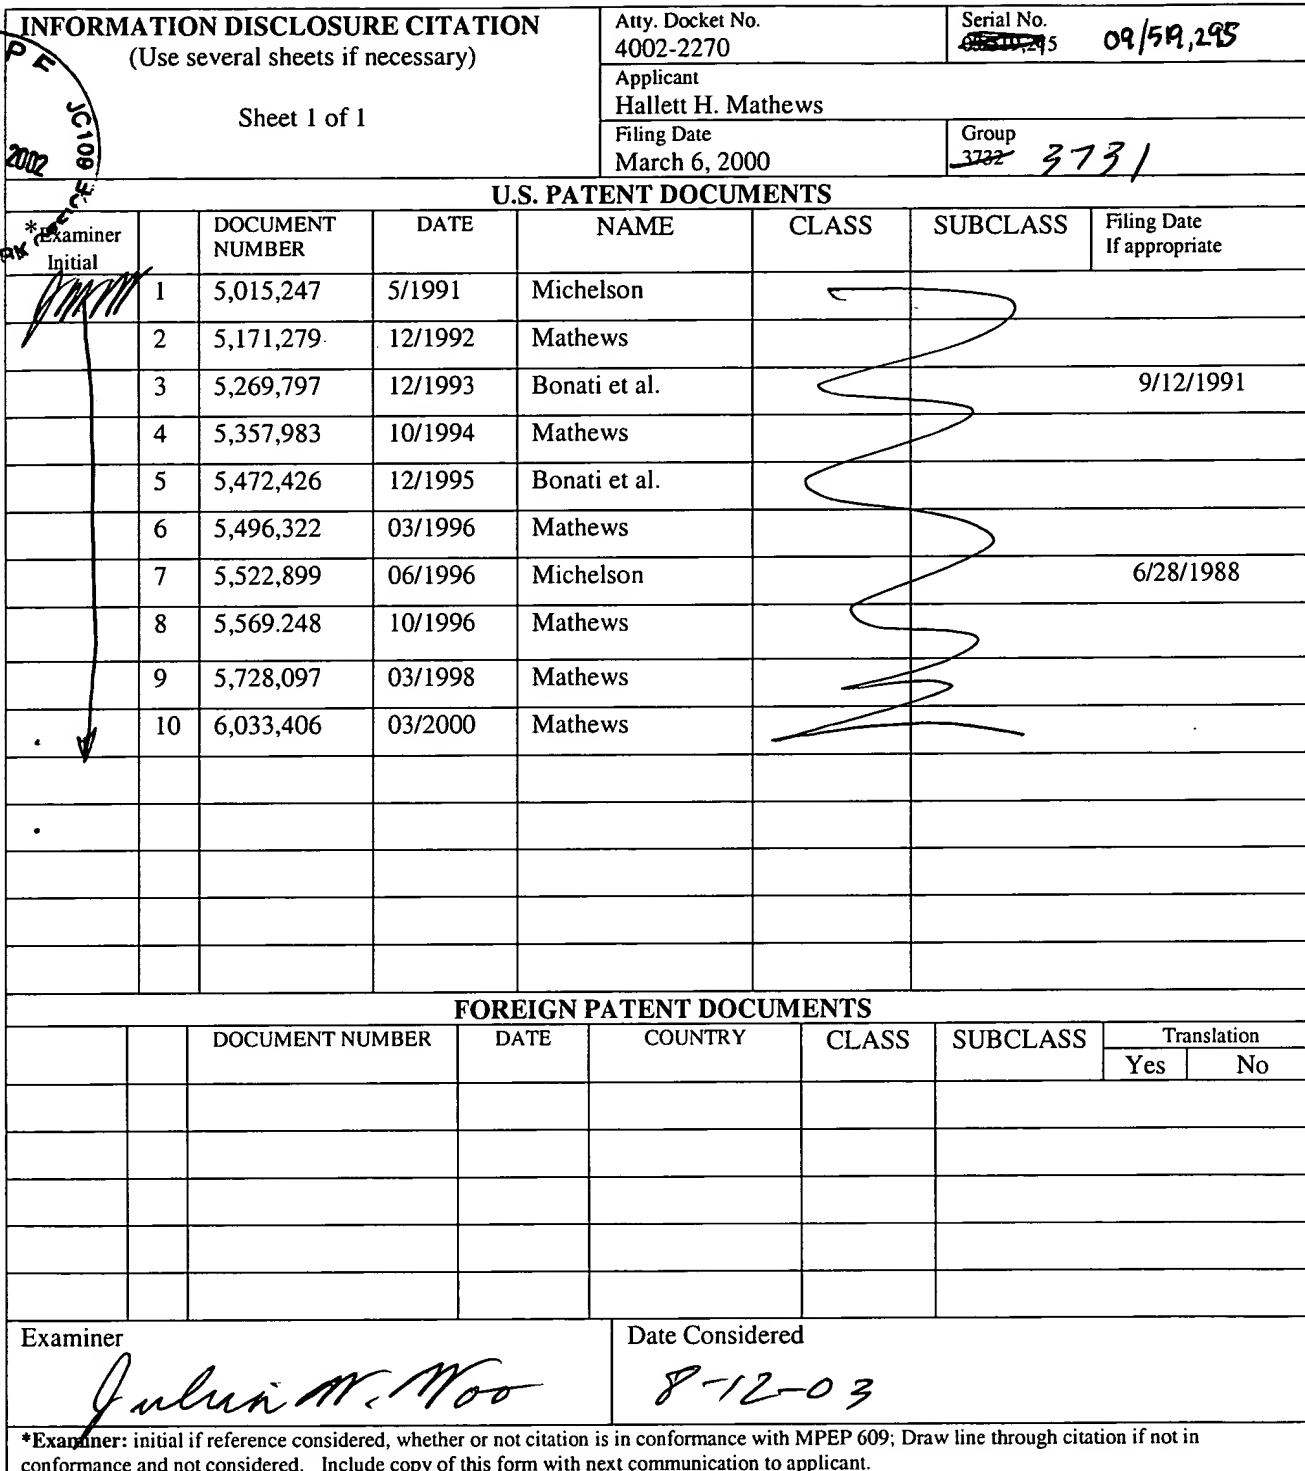 INFORMATION DISCLOSURE CITATION
(Use several sheets if necessary)
Sheet 1 of 1
Atty. Docket No.
4002-2270
Serial No.
09/519,295
Applicant
Hallett H. Mathews
Filing Date
March 6, 2000
Group
3732 3731
P E
JC109
2002
U.S. PATENT DOCUMENTS
*Examiner Initial DOCUMENT NUMBER DATE NAME CLASS SUBCLASS Filing Date If appropriate
1 5,015,247 5/1991 Michelson
2 5,171,279 12/1992 Mathews
3 5,269,797 12/1993 Bonati et al. 9/12/1991
4 5,357,983 10/1994 Mathews
5 5,472,426 12/1995 Bonati et al.
6 5,496,322 03/1996 Mathews
7 5,522,899 06/1996 Michelson 6/28/1988
8 5,569.248 10/1996 Mathews
9 5,728,097 03/1998 Mathews
10 6,033,406 03/2000 Mathews
FOREIGN PATENT DOCUMENTS
DOCUMENT NUMBER DATE COUNTRY CLASS SUBCLASS Translation
Yes No
Examiner
Julian W. Woo
Date Considered
8-12-03
*Examiner: initial if reference considered, whether or not citation is in conformance with MPEP 609; Draw line through citation if not in
conformance and not considered. Include copy of this form with next communication to applicant.